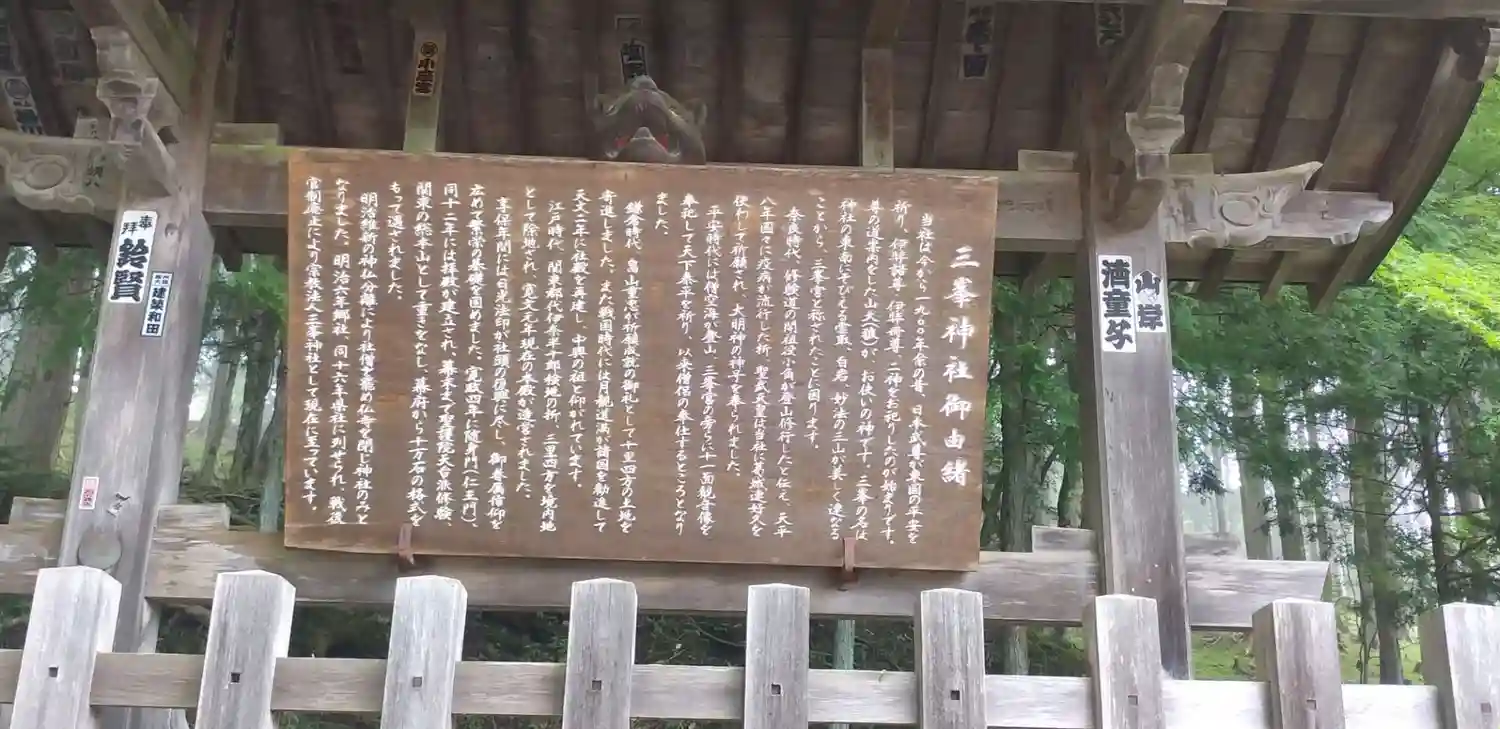 三峯神社御由緒
当社は今から一九〇〇年余の昔、日本武尊が東国の平安を
祈り、伊弉諾尊、伊弉册尊、二神をお祀りしたのが始まりです。
尊の道案内をした山犬(狼)が、お使いの神です。三峯の名は
神社の東南にそびえる雲取、白岩、妙法の三山が美しく連なる
ことから、三峯宮と称されたことに因ります。
奈良時代、修験道の開祖役小角が登山修行したと伝え、天平
八年国々に疫病が流行した折、聖武天皇は当社に葛城連好久を
使わして祈願され、大明神の神号を奉られました。
平安時代には僧空海が登山、三峯宮の傍らに十一面観音像を
奉祀して天下泰平を祈り、以来僧の奉仕するところとなり
ました。
鎌倉時代、畠山重忠が祈願成就の御礼として十里四方の土地を
寄進しました。また戦国時代には月観道満が諸国を勧進して
天文二年に社殿を再建し、中興の祖と仰がれています。
江戸時代、関東郡代伊奈半十郎検地の折、三里四方を境内地
として除地され、寛文元年現在の本殿が造営されました。
享保年間には日光法印が社頭の復興に尽し、御眷属信仰を
広めて繁栄の基礎を固めました。寛政四年に随身門(仁王門)、
同十二年には拝殿が建立され、幕末まで聖護院天台派修験、
関東の総本山として重きをなし、幕府から十万石の格式を
もって遇されました。
明治維新の神仏分離により社僧を廃め仏寺を閉じ神社のみと
なりました。明治六年郷社、同十六年県社に列せられ、戦後
官制廃止により宗教法人三峯神社として現在に至っています。
奉拝
鈴賢
建築和田
山岸
酒童子
小座宮